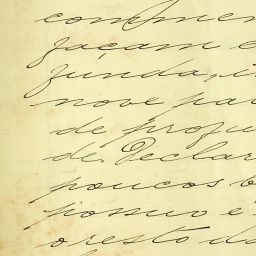 commen
façam e
funda, i
nove pa
de profu
de. Declar
poucos b
possuo e
o resto do